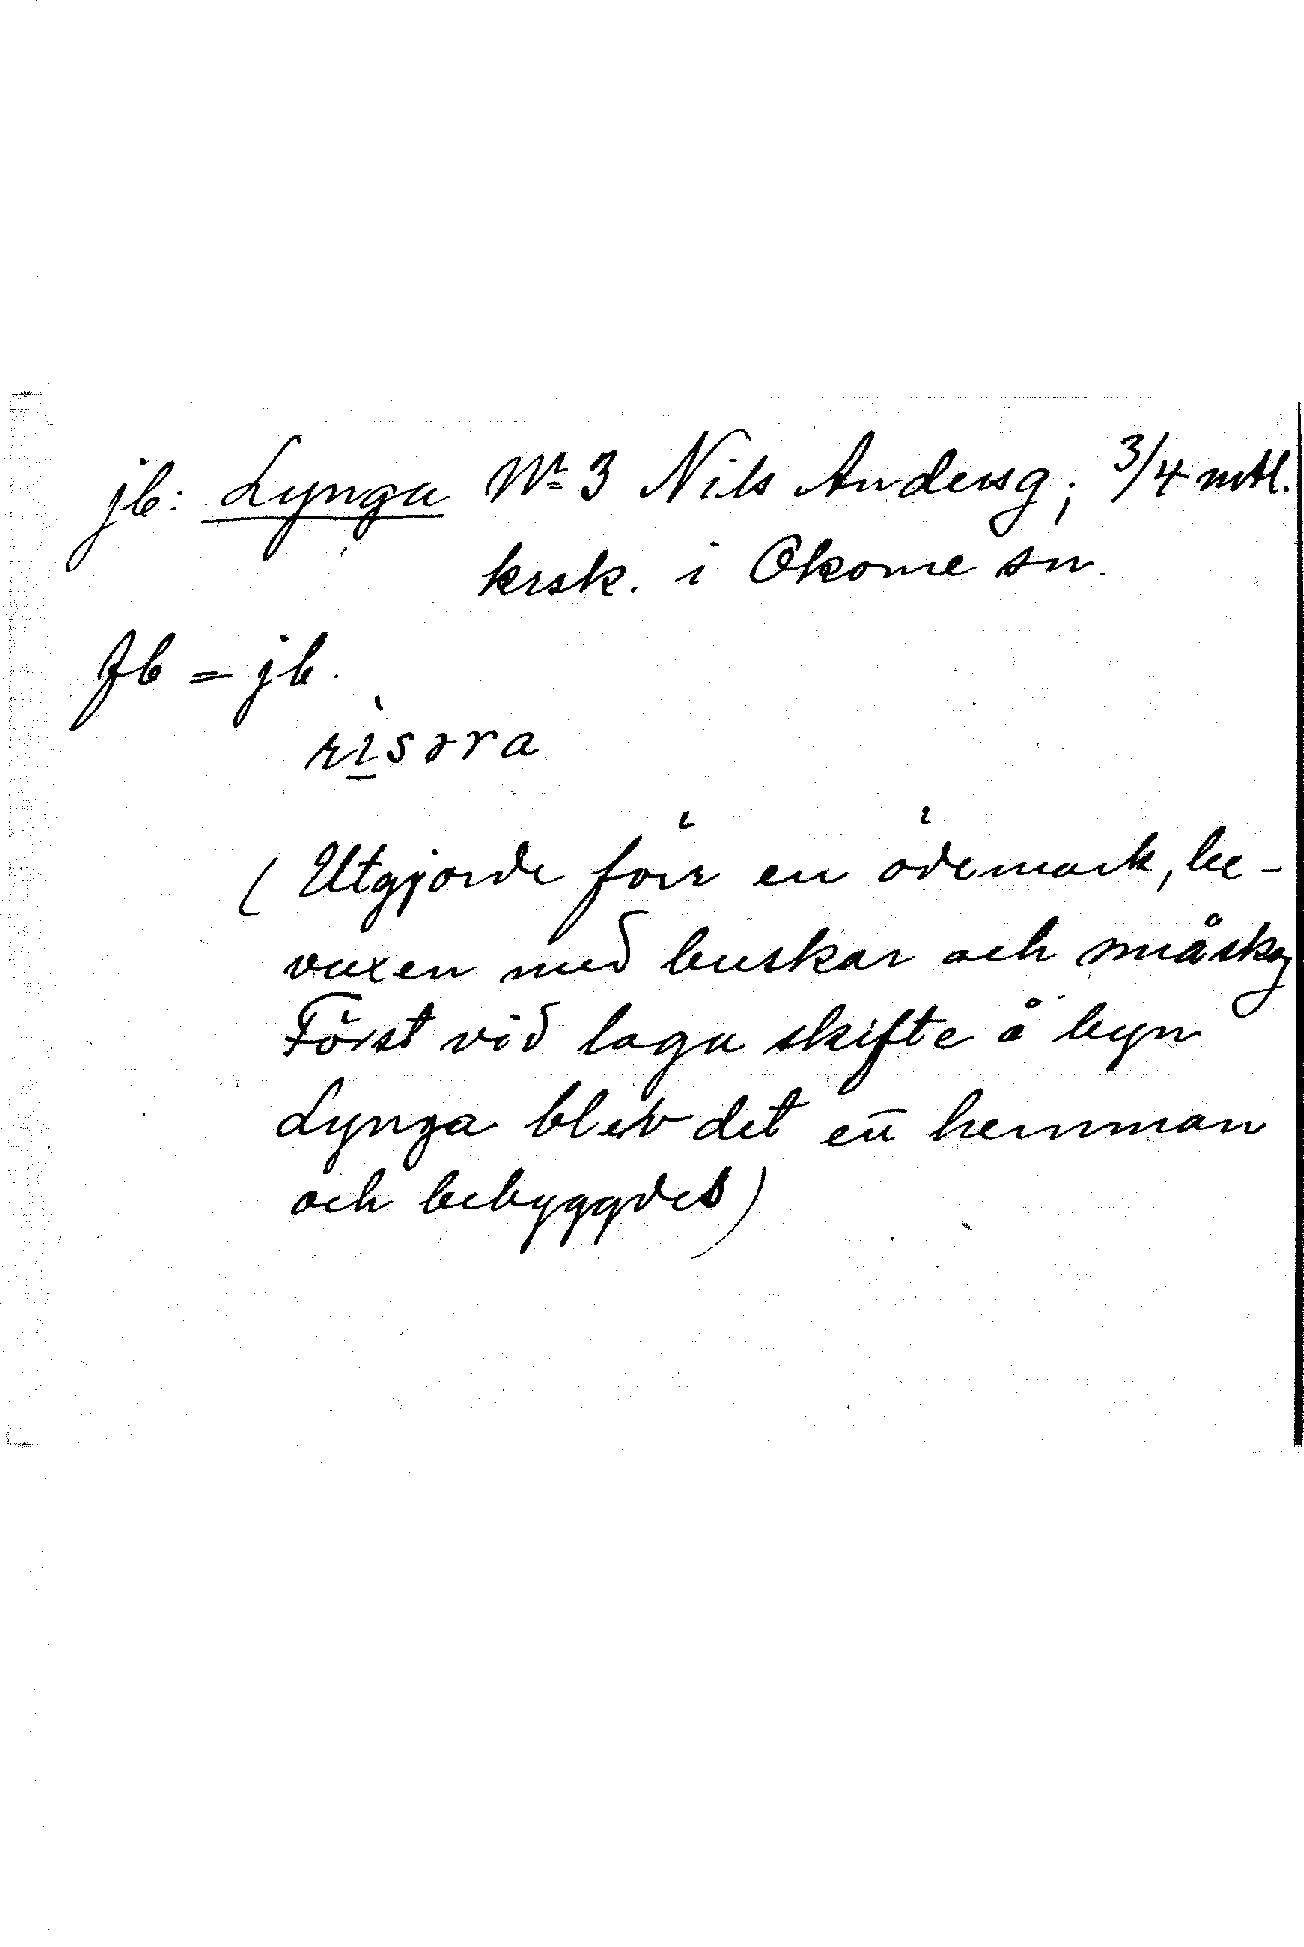 jb: Lynga Nr 3 Nils Andersg; 3/4 mtl.
krsk. i Okome sn.
Jb = jb.
rìsəra
(Utgjorde förr en ödemark, be-
vuxen med buskar och småskog
Först vid laga skifte å byn
Lynga blev det en hemman
och bebyggdes)